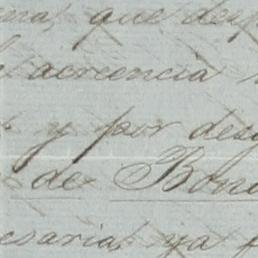 que des
acreencia
y por des
de Bon
esaria ya f